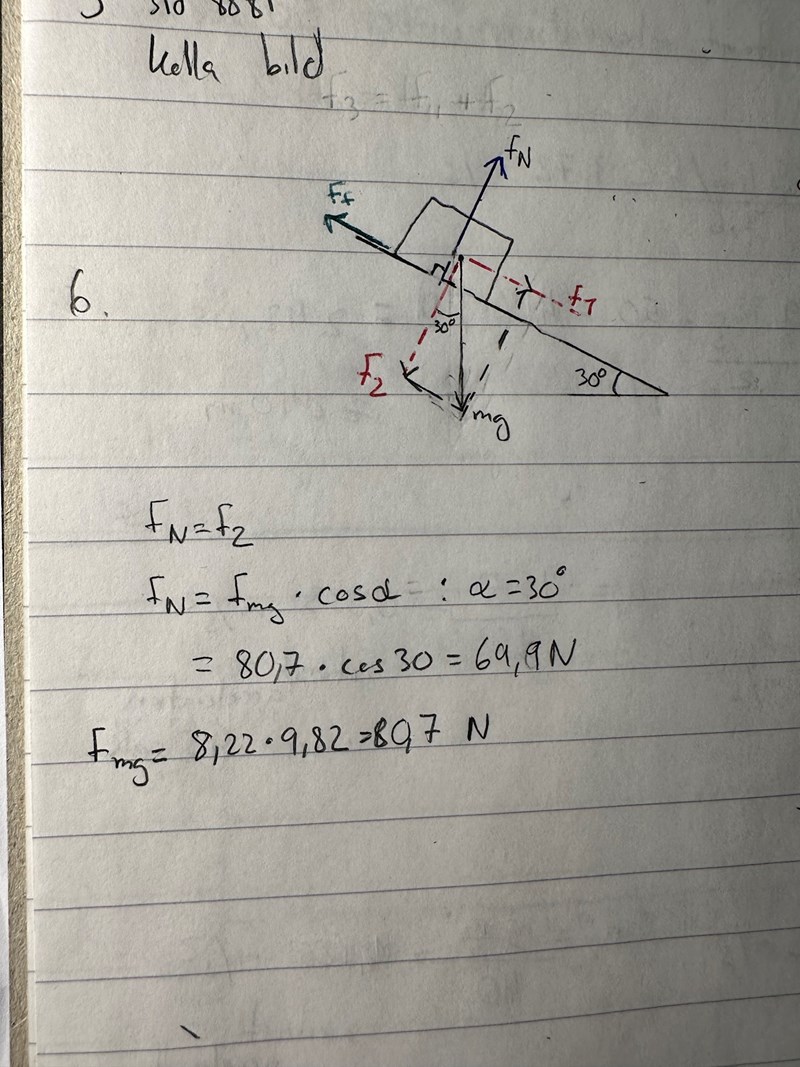 Kolla bild
F_N
F_f
6.
F_1
30°
F_2
30°
mg
F_N = F_2
F_N = F_mg · cosα : α = 30°
= 80,7 · cos 30 = 69,9 N
F_mg = 8,22 · 9,82 = 80,7 N